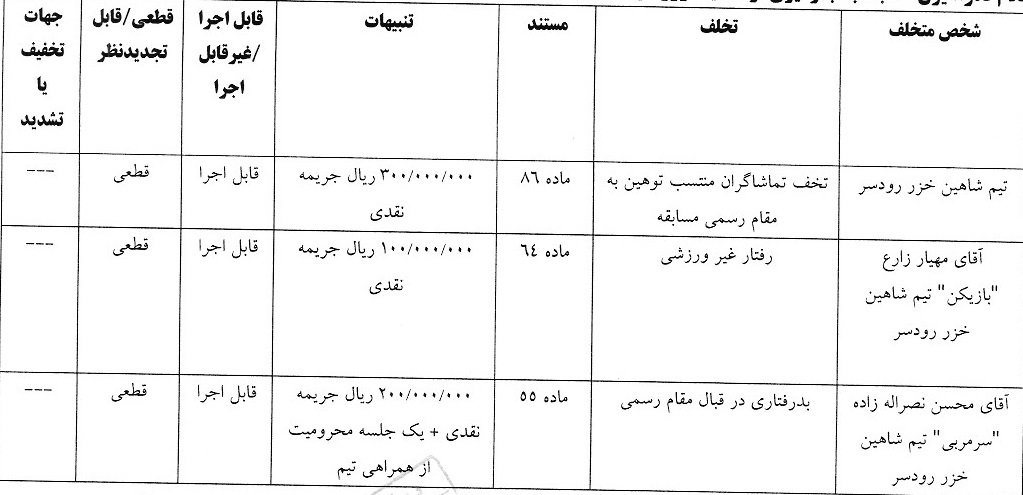 شخص متخلف
تخلف
مستند
تنبیهات
قابل اجرا
/غیرقابل
اجرا
قطعی/قابل
تجدیدنظر
جهات
تخفیف
یا
تشدید
تیم شاهین خزر رودسر
تخف تماشاگران منتسب توهین به
مقام رسمی مسابقه
ماده ٨٦
٣٠٠/٠٠٠/٠٠٠ ریال جریمه
نقدی
قابل اجرا
قطعی
---
آقای مهیار زارع
"بازیکن" تیم شاهین
خزر رودسر
رفتار غیر ورزشی
ماده ٦٤
١٠٠/٠٠٠/٠٠٠ ریال جریمه
نقدی
قابل اجرا
قطعی
---
آقای محسن نصراله زاده
"سرمربی" تیم شاهین
خزر رودسر
بدرفتاری در قبال مقام رسمی
ماده ٥٥
٢٠٠/٠٠٠/٠٠٠ ریال جریمه
نقدی + یک جلسه محرومیت
از همراهی تیم
قابل اجرا
قطعی
---